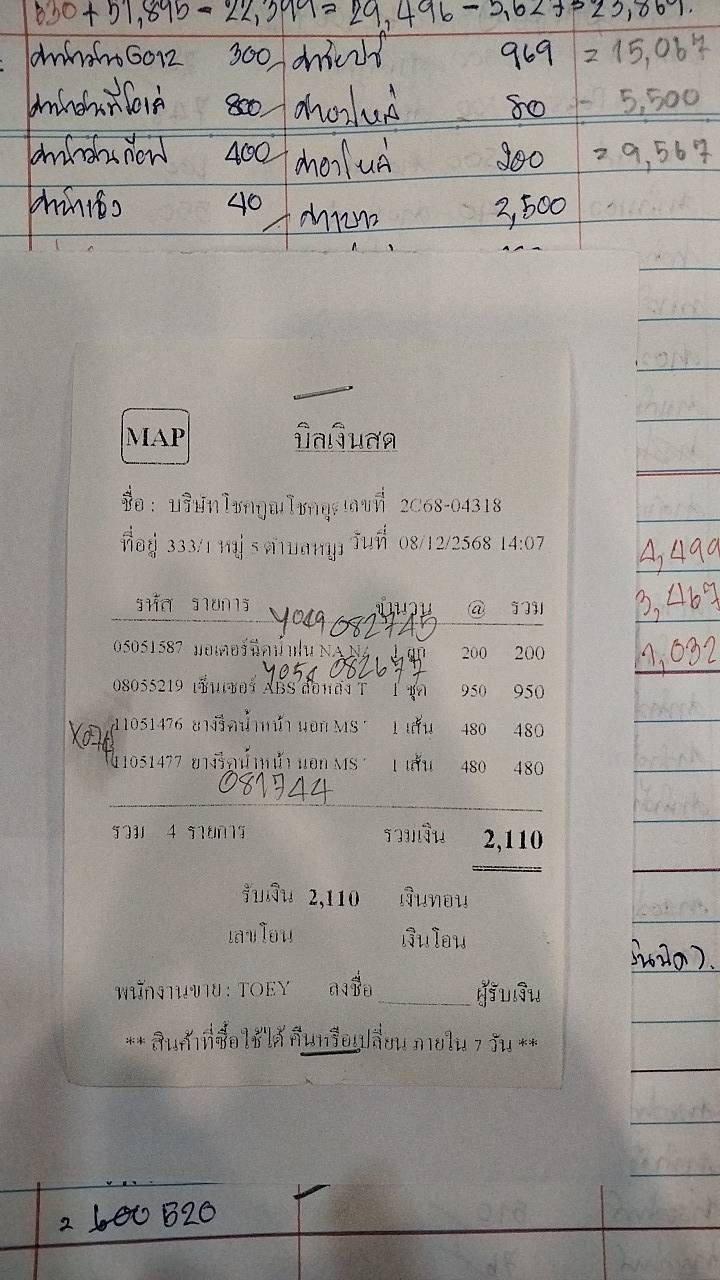 630 + 51,895 - 22,399 = 29,496 - 5,627 = 23,869.
ค่าน้ำมันGo12 300 969 = 15,067
800 80 - 5,500
400 ค่าอาไหล่ 200 = 9,567
40 2,500
MAP บิลเงินสด
ชื่อ : บริษัทโชคคูณโชคอุ เลขที่ 2C68-04318
ที่อยู่ 333/1 หมู่ 5 ตำบลหมูง วันที่ 08/12/2568 14:07
รหัส รายการ จำนวน @ รวม
Y049 082745
05051587 มอเตอร์ฉีดน้ำฝน NA 1 ลูก 200 200
Y054 082677
08055219 เซ็นเซอร์ ABS ล้อหลัง T 1 ชุด 950 950
X074
11051476 ยางรีดน้ำหน้า นอก MS 1 เส้น 480 480
11051477 ยางรีดน้ำหน้า นอก MS 1 เส้น 480 480
081744
รวม 4 รายการ รวมเงิน 2,110
รับเงิน 2,110 เงินทอน
เลขโอน เงินโอน
พนักงานขาย : TOEY ลงชื่อ ผู้รับเงิน
** สินค้าที่ซื้อใช้ได้ คืนหรือเปลี่ยน ภายใน 7 วัน **
4,499
3,467
1,032
= 600 520